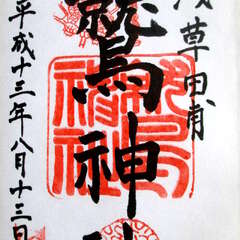 浅草田甫
鷲神社
平成十三年八月十三日